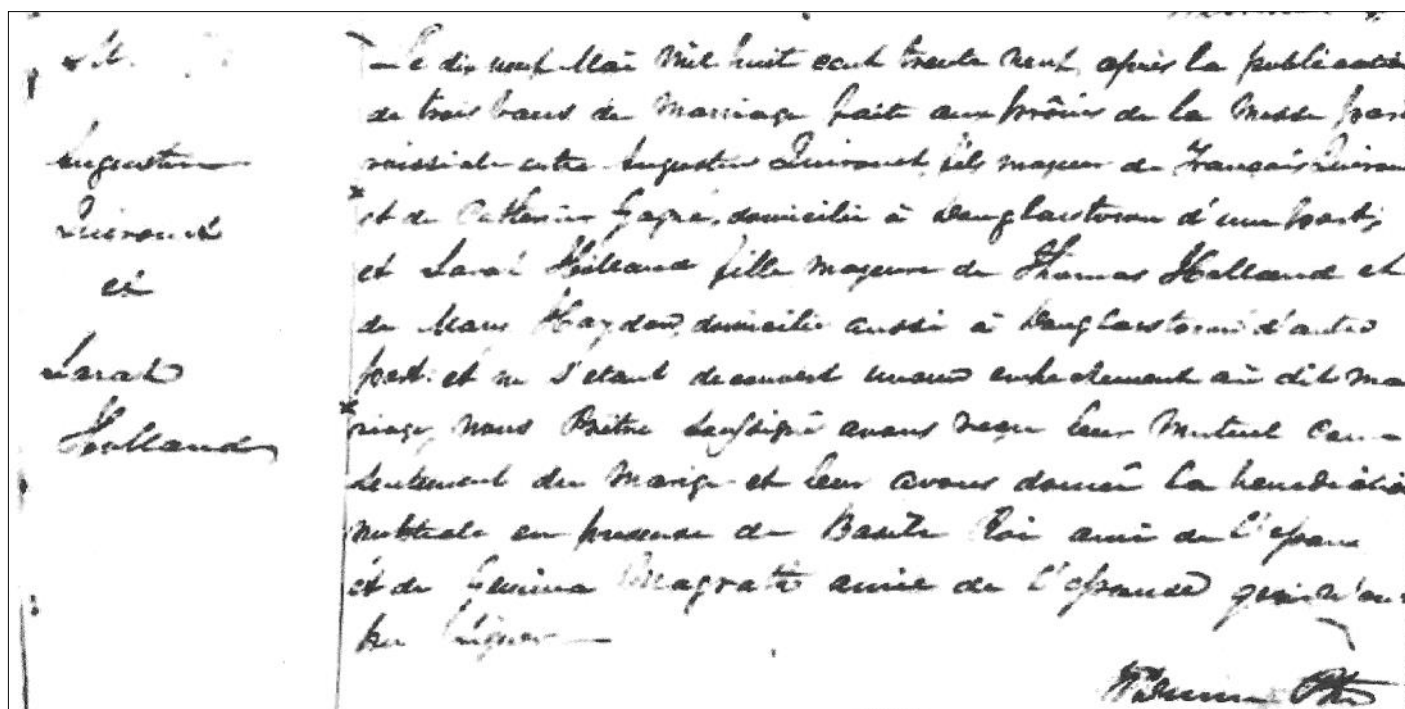 M.
Augustin
Quirouet
et
Sarah
Holland
Le dix neuf Mai Mil huit cent trente neuf, après la publication
de trois bans de Marriage faite aux prônes de la Messe paroi
roissiale entre Augustin Quirouet, fils majeur de François Quirou
et de Catherine Gagné, domicilié à Douglasstown d'une part;
et Sarah Holland fille majeure de Thomas Holland et
de Mary Haydon, domicilié aussi à Douglasstown d'autre
part. et ne s'étant decouvert aucun empechement au dit ma
riage, nous Prêtre Soussigné avons reçu leur Mutuel con-
sentement du Mariage et leur avons donné la benediction
nuptiale en presence de Basile Roi ami de l'epoux
et de Magrath amie de l'epouse qui n'on
pu Signer